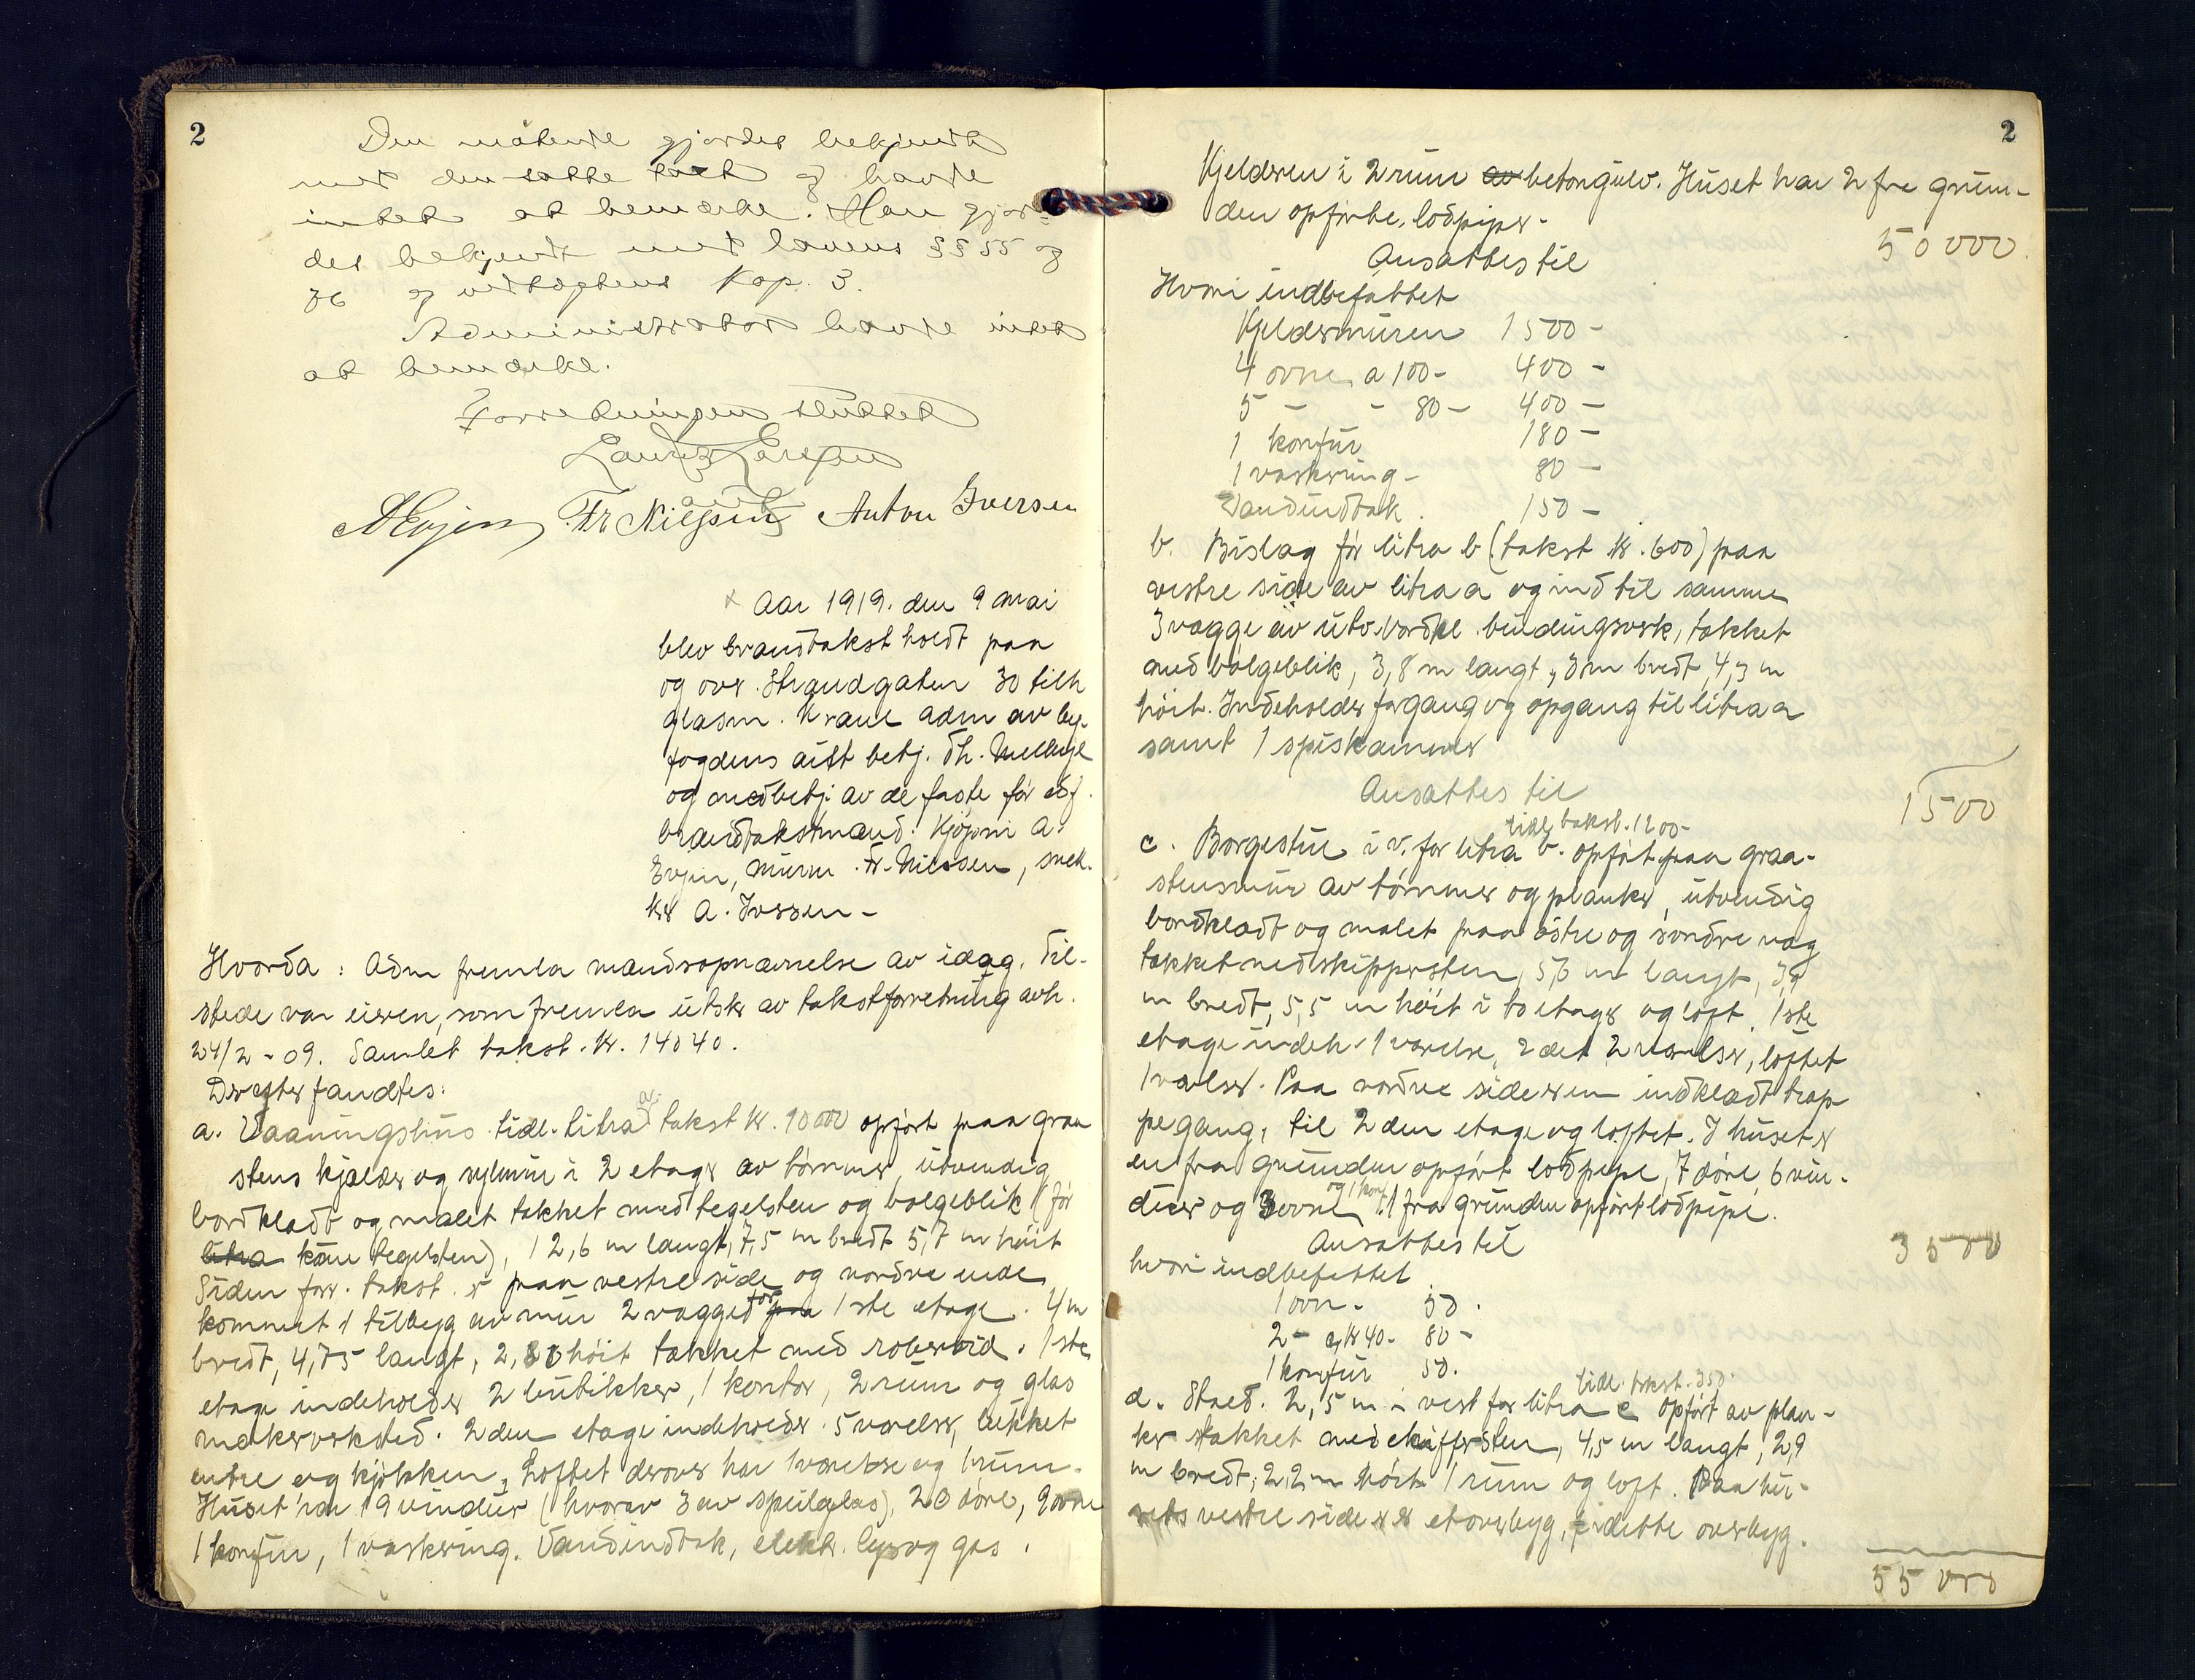 2
Den møtende gjordes bekjendt
med den satte takst og havde
intet at bemærke. Han gjor-
des bekjendt med lovens §§ 55 og
76 og vedtægtens Kap. 3.
Administrator havde intet
at bemærke.
Forretningen sluttet
Lauritz Larssen
AEvjen Fr Nielssen Anton Iversen
Aar 1919. den 9 mai
blev brandtakst holdt paa
og over Strandgaten 30 tilh
glasm. Krane adm av by-
fogdens autt betj. Th.
og medbetj. av de faste før edf.
brandtakstmænd. Kjøpm A.
Evjen, murm. Fr. Nielssen, snek-
ker A. Iversen -
Hvorda: Adm fremla mandsopnævnelse av idag. Til-
stede var eieren, som fremla utskr av takstforretning avh.
24/2 - 09. Samlet takst. kr. 14040.
Derefter fandtes:
a. Vaaningshus tidl. litra a. takst kr. 10000 opført paa graa
stens kjælder og sylmur i 2 etager av tømmer, utvendig
bordklædt og malet takket med tegelsten og bølgeblik (før
litra kun tegelsten), 12,6 m langt, 7,5 m bredt 5,7 m høit
Siden forr. takst er paa vestre side og nordre ende
kommet 1 tilbyg av mur 2 vægget for paa 1ste etage. 4 m
bredt, 4,75 langt, 2,80 høit takket med roberoid. 1ste
etage indeholder 2 butikker, 1 kontor, 2 rum og glas
mækerverksted. 2den etage indeholder 5 værelser, lukket
entre og kjøkken, Loftet derover har 1 værelse og 1 rum.
Huset har 19 vinduer (hvorav 3 av speilglas), 20 døre, 9 ovne
1 komfur, 1 vaskering. Vandindtak, elektr. lys og gas.
2
Kjelderen i 2 rum av betongulv. Huset har 2 fra grun-
den opførte, lodpiper -
Ansættes til
50000
Hvori indbefattet
Kjeldermuren 1500 -
4 ovne a 100 - 400 -
5 - - 80 - 400 -
1 komfur 180 -
1 vaskering - 80 -
Vandindtak. 150 -
b. Bislag før litra b (takst kr. 600) paa
vestre side av litra a og ind til samme
3 vægge av utv. bordkl. bindingsverk, takket
med bølgeblik, 3,8 m langt, 3 m bredt, 4,3 m
høit. Indeholder forgang og opgang til litra a
samt 1 spiskammer
Ansættes til
1500
c. Borgestue i v. for litra b. tidl. takst. 1200 - opført paa graa-
stensmur av tømmer og planker, utvendig
bordklædt og malet paa østre og søndre væg
takket med skippersten, 5,6 m langt, 3,9
m bredt, 5,5 m høit i to etager og loft. 1ste
etage indeh. 1 værelse, 2det 2 værelser, loftet
1 værelser. Paa nordre side er en indklædt trap
pegang, til 2den etage og loftet. I huset er
en fra grunden opført lodpipe, 7 døre, 6 vin-
duer og 3 ovne og 1 komf. 1 fra grunden opført lodpipe.
Ansættes til
3500
hvori indbefattet
1 ovn - 50.
2 - a kr 40 - 80 -
1 komfur 50.
d. Stald. 2,5 m i vest for litra c tidl. takst. 350. opført av plan-
ker takket med skiffersten, 4,5 m langt, 2,9
m bredt, 2,2 m høit 1 rum og loft. Paa hu-
sets vestre side er et overbyg, i dette overbyg.
55000